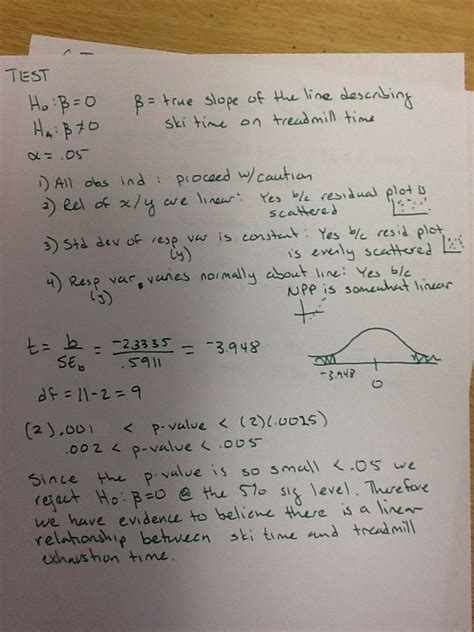 TEST
H₀: β = 0 β = true slope of the line describing
Hₐ: β ≠ 0 ski time on treadmill time
α = .05
1) All obs ind : proceed w/caution
2) Rel of x/y are linear: Yes b/c residual plot is
scattered
3) Std dev of resp var is constant: Yes b/c resid plot
(y) is evenly scattered
4) Resp var varies normally about line: Yes b/c
(y) NPP is somewhat linear
t = b/SE_b = -2.3335/.5911 = -3.948
-3.948 0
df = 11-2 = 9
(2).001 < p-value < (2)(.0025)
.002 < p-value < .005
Since the p-value is so small < .05 we
reject H₀: β=0 @ the 5% sig level. Therefore
we have evidence to believe there is a linear
relationship between ski time and treadmill
exhaustion time.